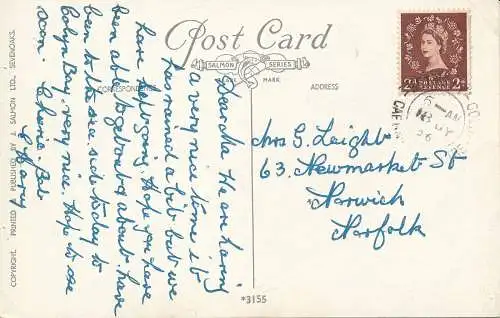 Post Card
SALMON SERIES
TRADE MARK
CORRESPONDENCE
ADDRESS
Dear Ma. We are having
a very nice time it
has rained a bit but we
have kept going. Hope you have
been able to get out a bit. have
been to the sea side today to
Colwyn Bay. very nice. Hope to see
soon. Cheerio Bob
& Mary
Mrs G. Leight
63. Newmarket St
Norwich
Norfolk
2D POSTAGE REVENUE 2D
6 - AM
18 JY
56
CAE
*3155
COPYRIGHT. PRINTED AND PUBLISHED BY J. SALMON LTD., SEVENOAKS.